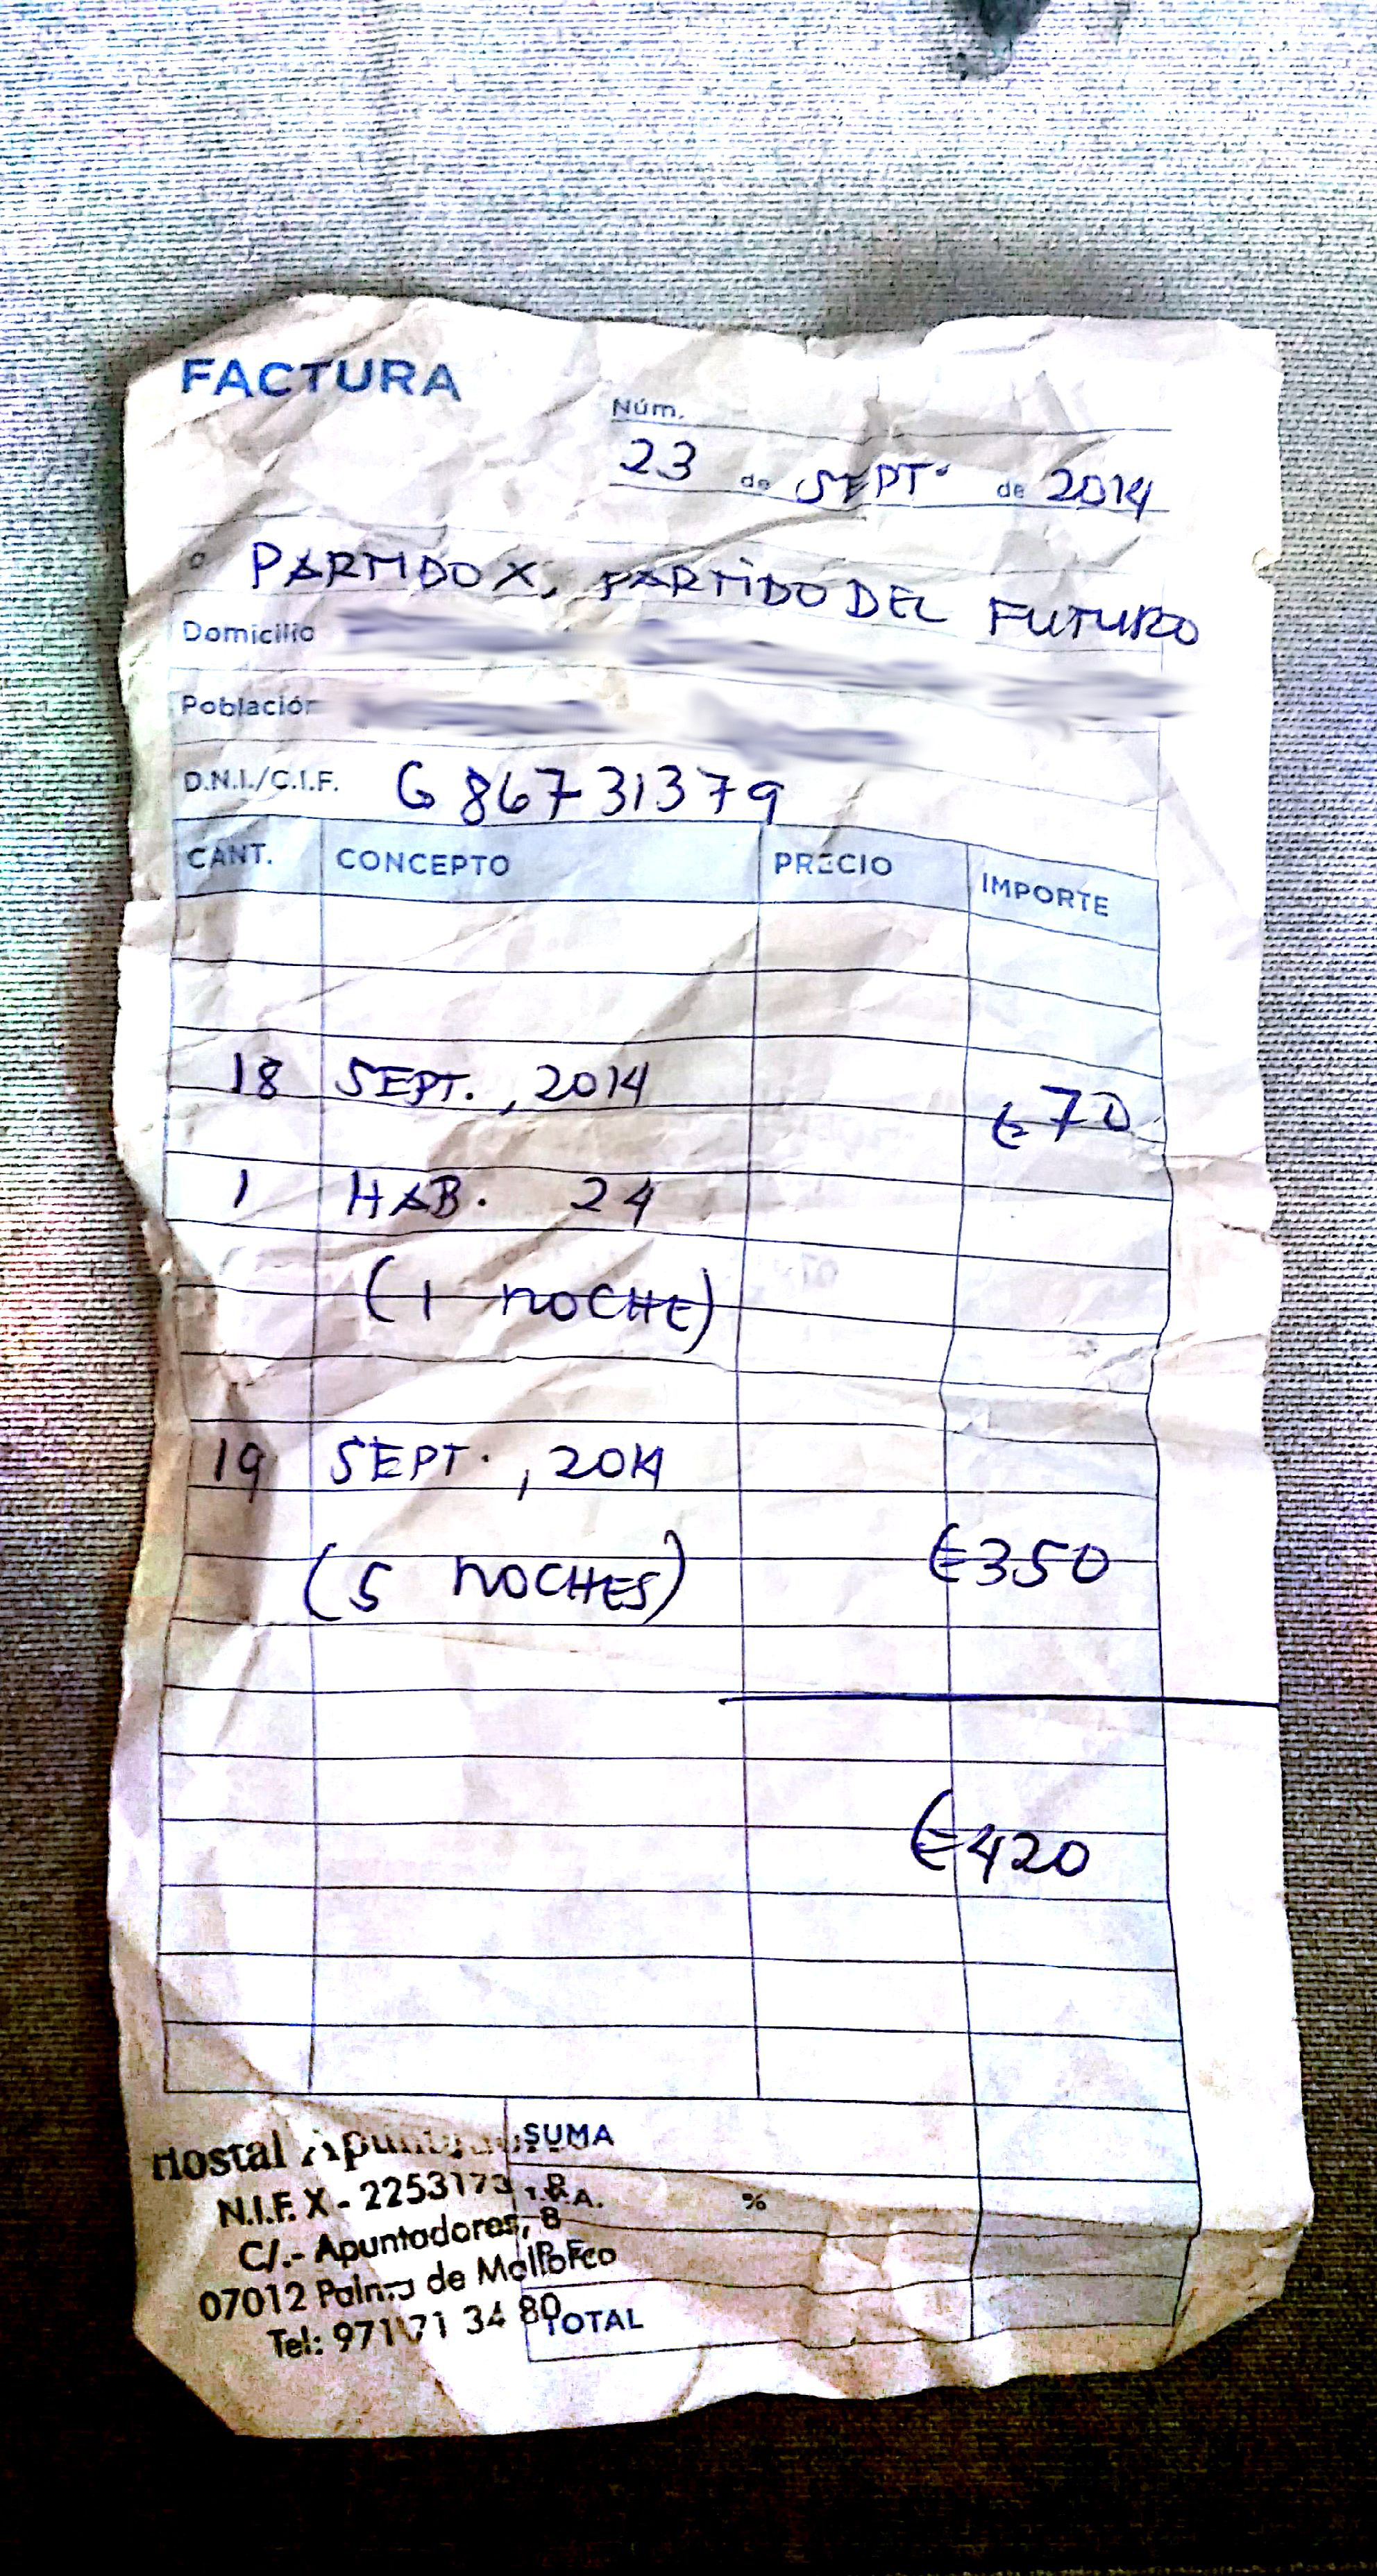 FACTURA
Núm.
23 de SEPT. de 2014
PARTIDO X, PARTIDO DEL FUTURO
Domicilio
Población
D.N.I./C.I.F. G 86731379
CANT. CONCEPTO PRECIO IMPORTE
18 SEPT., 2014 €70
1 HAB. 24
(1 NOCHE)
19 SEPT., 2014
(5 NOCHES) €350
€420
Hostal
SUMA
N.I.F. X - 2253173
%
C/.- Apuntadores, 8
07012 Palma de Mallorca
Tel: 971 71 34 80
TOTAL